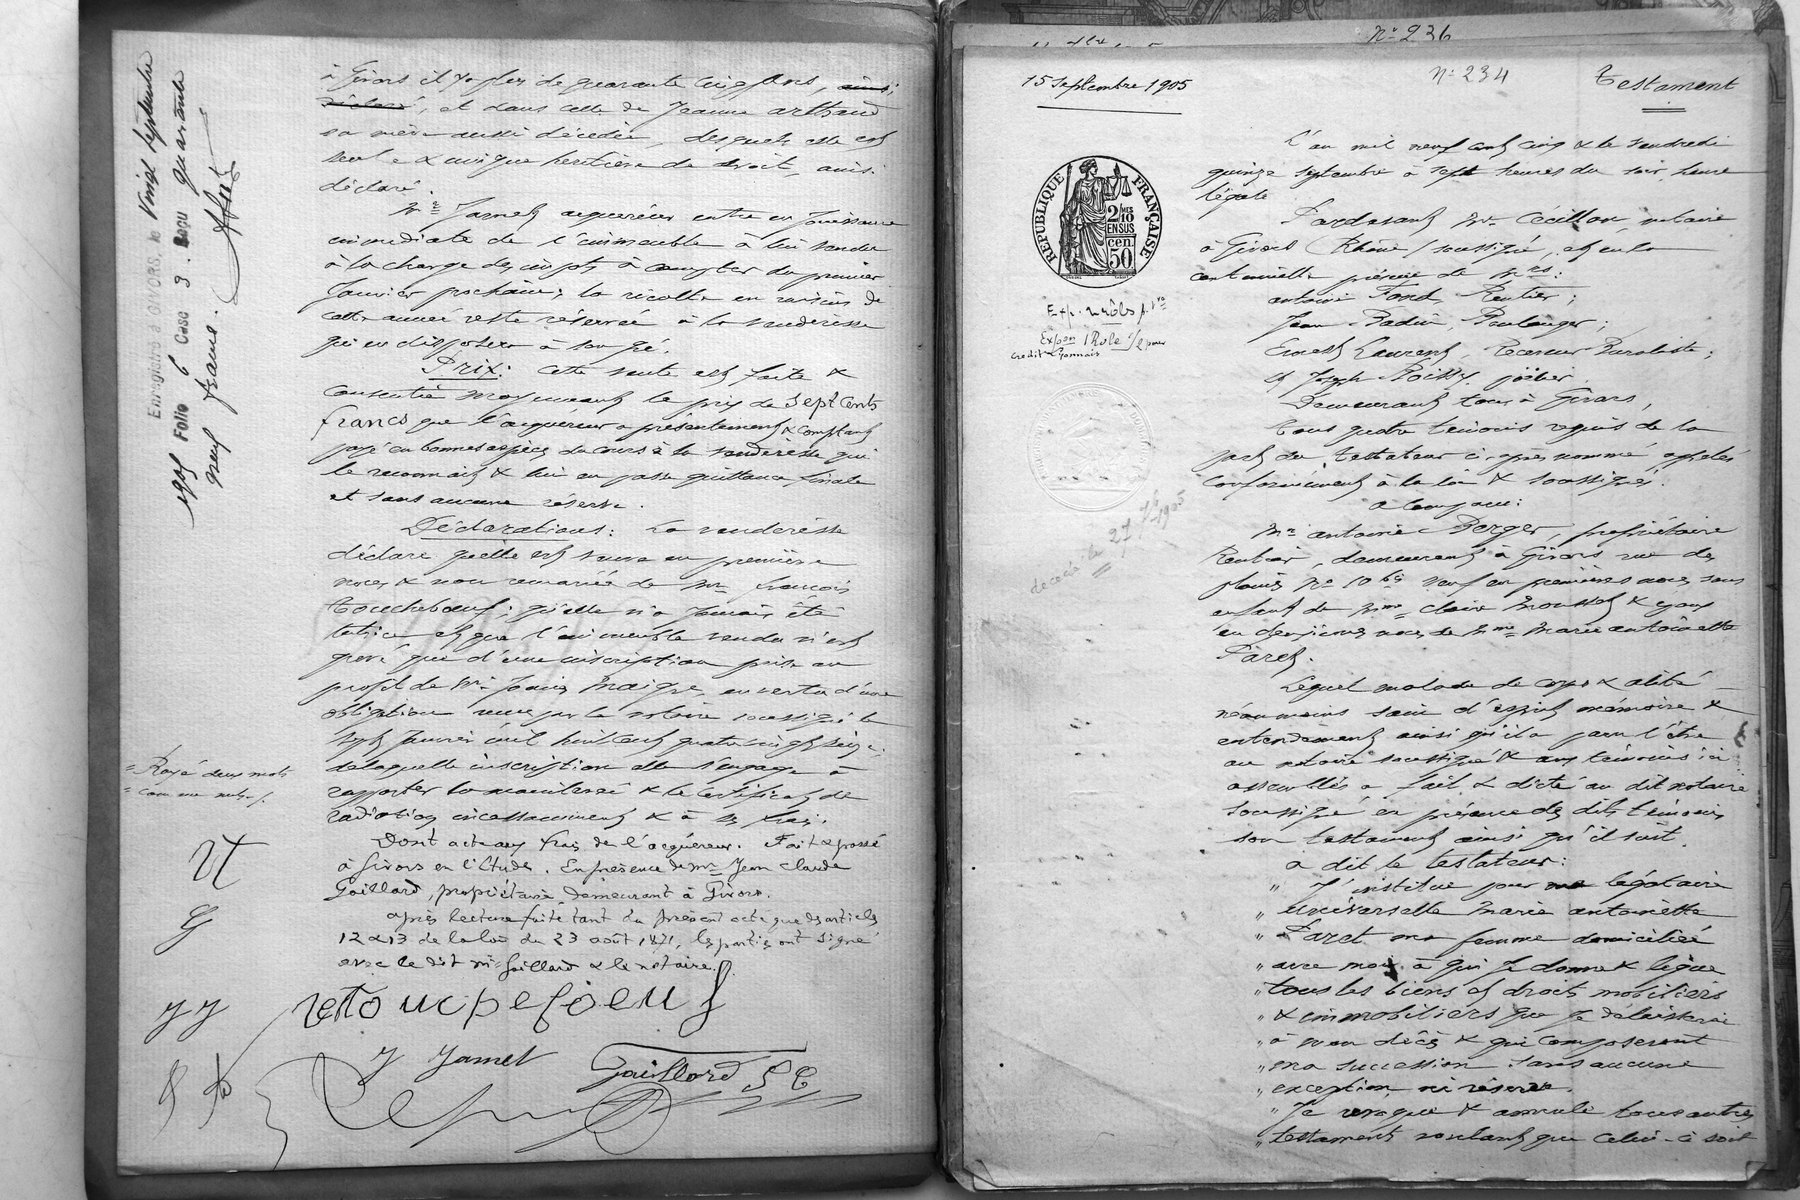 à Givors il y a plus de quarante cinq ans, ainsi
déclaré, et dans celle de Jeanne Arthaud
sa mère aussi décédée, desquels elle est
seule & unique héritière de droit, ainsi
déclaré.
Mr Jamet acquéreur entre en jouissance
immédiate de l'immeuble à lui vendu
à la charge des impôts à compter du premier
Janvier prochain; la récolte en raisins de
cette année reste réservée à la venderesse
qui en disposera à son gré.
Prix: Cette vente est faite &
consentie moyennant le prix de Sept Cents
francs que l'acquéreur a présentement & comptant
payé en bonnes espèces du cours à la venderesse qui
le reconnait & lui en passe quittance finale
et sans aucune réserve.
Déclarations: La venderesse
déclare qu'elle est veuve en premières
noces & non remariée de Mr François
Touchebœuf; qu'elle n'a jamais été
tutrice et que l'immeuble vendu n'est
grevé que d'une inscription prise au
profit de Mr Maigre en vertu d'une
obligation reçue par le notaire soussigné le
sept Janvier mil huit cent quatre vingt seize,
de laquelle inscription elle s'engage à
rapporter la mainlevée & le certificat de
radiation incessamment & à ses frais.
Dont acte aux frais de l'acquéreur. Fait & passé
à Givors en l'Etude. En présence de Mr Jean Claude
Gaillard, propriétaire demeurant à Givors.
Après lecture faite tant du présent acte que des articles
12 & 13 de la loi du 23 août 1871, les parties ont signé
avec le dit Mr Gaillard & le notaire.
J Jamet
Gaillard J C
Enregistré à GIVORS, le Vingt Septembre
1905 Folio 6 Case 3. Reçu quarante
neuf francs.
Rayé deux mots
comme nuls.
J J
N° 236
15 Septembre 1905
N° 234
Testament
RÉPUBLIQUE FRANÇAISE
2/10
EN SUS
50 cen.
Expon 1 Role
Credit Lyonnais
décédé le 27 7bre 1905
L'an mil neuf cent cinq & le vendredi
quinze septembre à sept heures du soir heure
légale
Pardevant Me Cecillon, notaire
à Givors (Rhône) soussigné, et en la
continuelle présence de Mrs:
Antoine Fond, Rentier;
Jean Badin, Boulanger;
Ernest Laurent, Receveur Buraliste;
et Joseph
Demeurant tous à Givors,
Tous quatre témoins requis de la
part du testateur ci-après nommé, appelés
conformément à la loi & soussignés.
a comparu:
Mr Antoine Berger, propriétaire
Rentier, demeurant à Givors rue des
No 10 bis veuf en premières noces sans
enfant de Mme Claire Mousset & époux
en deuxièmes noces de Mme Marie Antoinette
Paret.
Lequel malade de corps & alité
néanmoins sain d'esprit mémoire &
entendement ainsi qu'il a paru l'être
au notaire soussigné & aux témoins ici
assemblés a fait & dicté au dit notaire
soussigné en présence des dits témoins
son testament ainsi qu'il suit.
a dit le testateur:
" J'institue pour ma légataire
" universelle Marie Antoinette
" Paret ma femme domiciliée
" avec moi à qui je donne & lègue
" tous les biens et droits mobiliers
" & immobiliers que je délaisserai
" à mon décès & qui composeront
" ma succession sans aucune
" exception ni réserve.
" Je révoque & annule tous autres
" testaments voulant que celui-ci soit